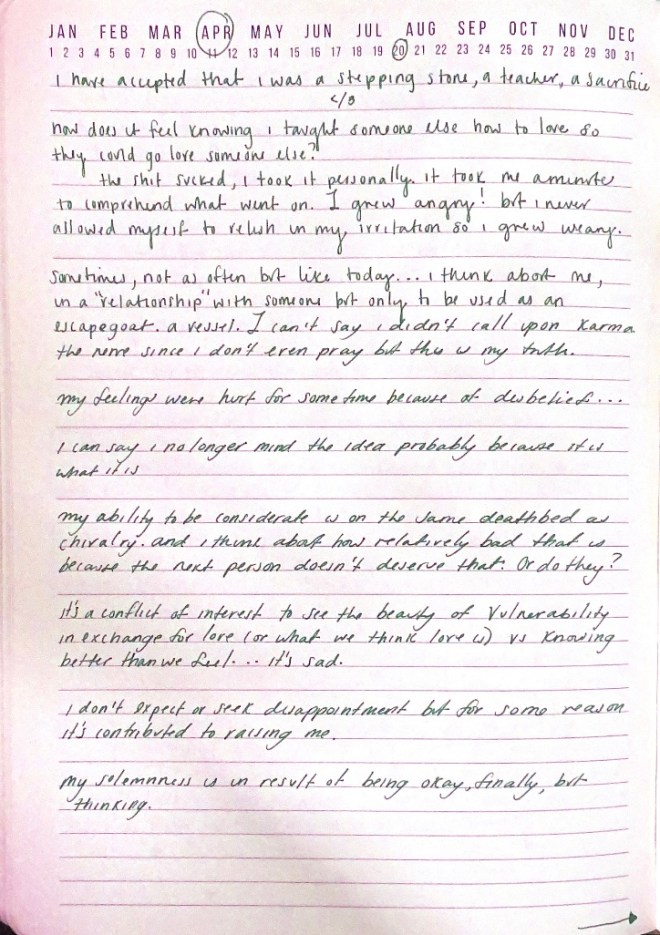 JAN FEB MAR APR MAY JUN JUL AUG SEP OCT NOV DEC
1 2 3 4 5 6 7 8 9 10 11 12 13 14 15 16 17 18 19 20 21 22 23 24 25 26 27 28 29 30 31
I have accepted that I was a stepping stone, a teacher, a sacrifice
c/s
how does it feel knowing I taught someone else how to love so
they could go love someone else?
the shit sucked, I took it personally. it took me a minute
to comprehend what went on. I grew angry! but I never
allowed myself to relish in my irritation so I grew weary.
sometimes, not as often but like today... I think about me,
in a "relationship" with someone but only to be used as an
escapegoat. a vessel. I can't say I didn't call upon karma
the nerve since I don't even pray but this is my truth.
my feelings were hurt for some time because of disbelief...
I can say I no longer mind the idea probably because it is
what it is
my ability to be considerate is on the same deathbed as
chivalry. and I think about how relatively bad that is
because the next person doesn't deserve that. Or do they?
it's a conflict of interest to see the beauty of vulnerability
in exchange for love (or what we think love is) vs knowing
better than we feel... it's sad.
I don't expect or seek disappointment but for some reason
it's contributed to raising me.
my solemnness is in result of being okay, finally, but
thinking.